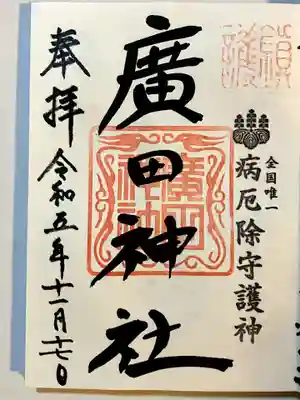 全国唯一
病厄除守護神
廣田神社
奉拝 令和五年十一月十七日
廣田
神社